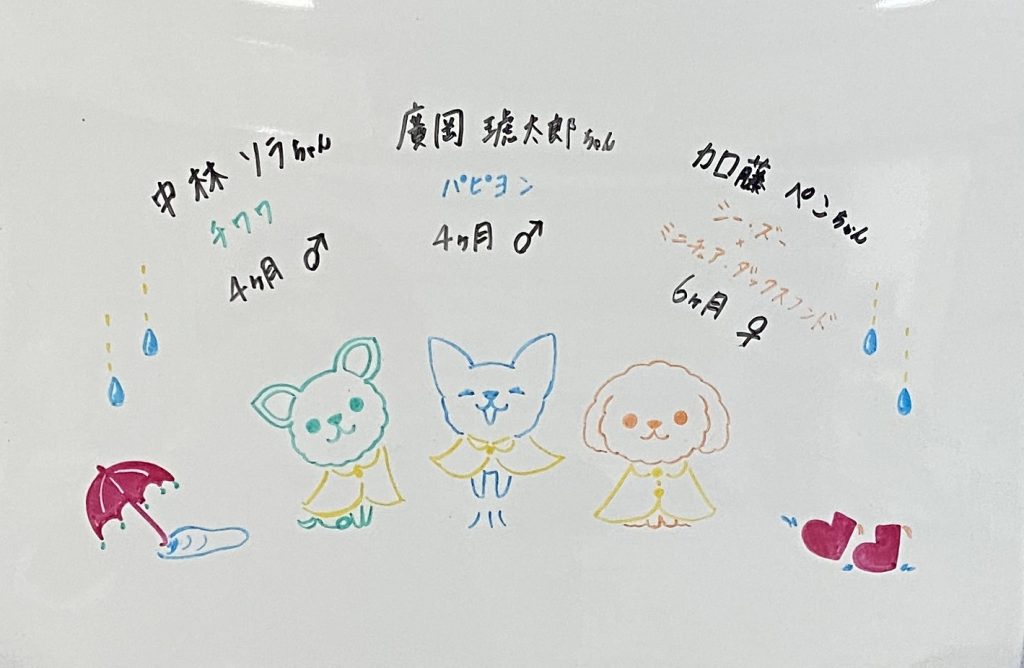 中林 ソラちゃん
チワワ
4ヶ月 ♂
廣岡 琥太郎ちゃん
パピヨン
4ヶ月 ♂
加藤 ペンちゃん
シー・ズー
×
ミニチュア・ダックスフンド
6ヶ月 ♀